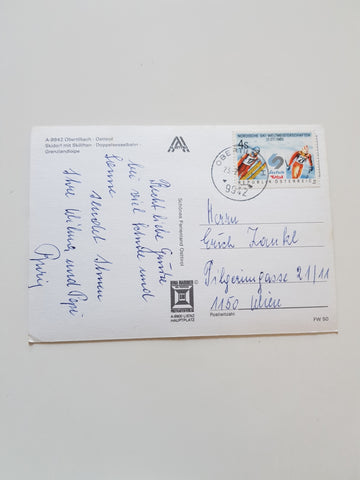 A-9942 Obertilliach · Osttirol
Skidorf mit Skiliften · Doppelsesselbahn ·
Grenzlandloipe
Recht liebe Grüße
bei viel Schnee und
Sonne
sendet Ihnen
Ihre Wilma und Pepi
Schönes Ferienland Osttirol
A-9900 LIENZ
HAUPTPLATZ
NORDISCHE SKI WELTMEISTERSCHAFTEN
4s
REPUBLIK ÖSTERREICH
9942
Herrn
Erich Zankl
Pilgerimgasse 21/11
1150 Wien
Postleitzahl
FW 50